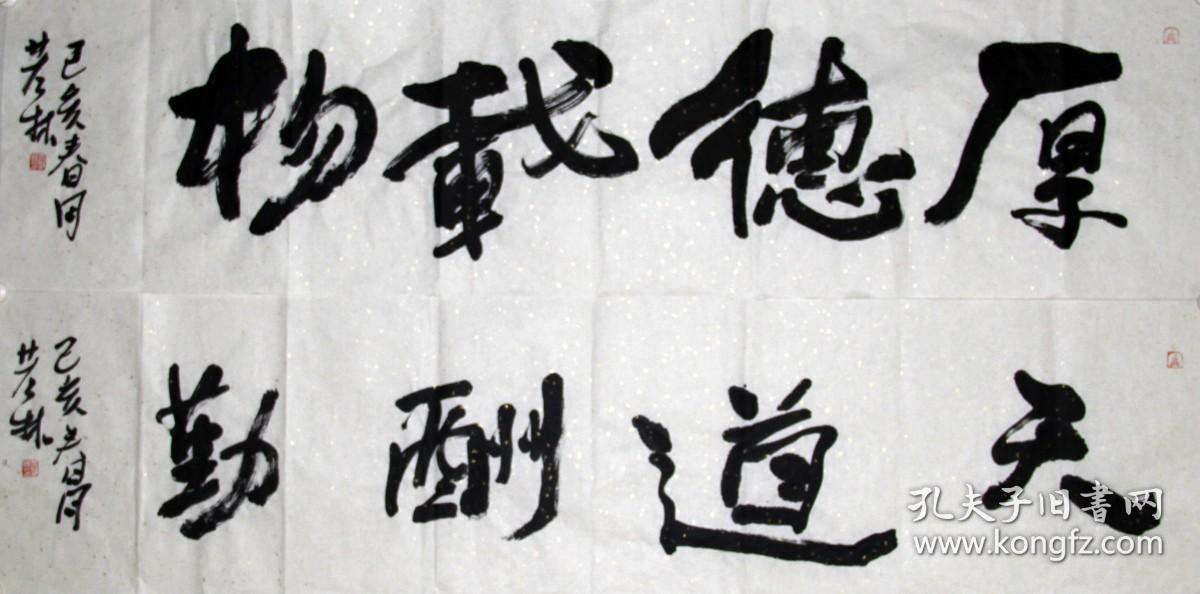 厚德載物
己亥春月
天道酬勤
己亥春月
孔夫子旧書网
www.kongfz.com